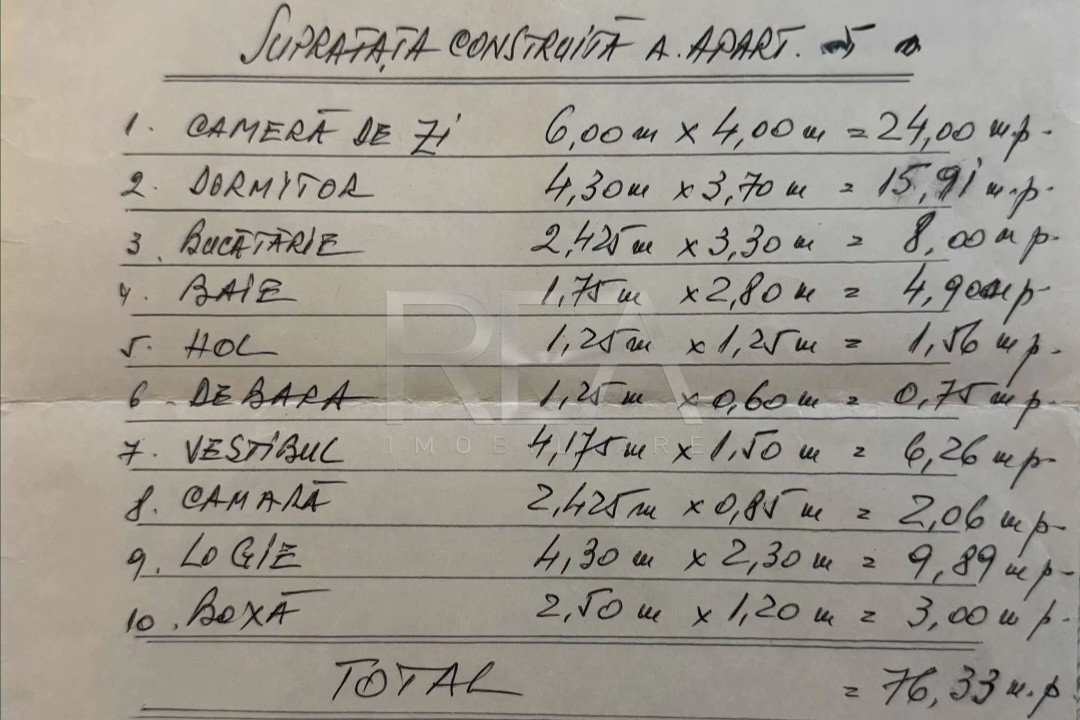 SUPRAFAȚA CONSTRUITĂ A. APART. 5
1. CAMERĂ DE ZI 6,00 m x 4,00 m = 24,00 m.p.
2. DORMITOR 4,30 m x 3,70 m = 15,91 m.p.
3. BUCĂTĂRIE 2,425 m x 3,30 m = 8,00 m p.
4. BAIE 1,75 m x 2,80 m = 4,90 m p.
5. HOL 1,25 m x 1,25 m = 1,56 m p.
6. DEBARA 1,25 m x 0,60 m = 0,75 m p.
7. VESTIBUL 4,175 m x 1,50 m = 6,26 m p.
8. CAMARĂ 2,425 m x 0,85 m = 2,06 m p.
9. LOGIE 4,30 m x 2,30 m = 9,89 m p.
10. BOXĂ 2,50 m x 1,20 m = 3,00 m p.
TOTAL = 76,33 m.p.
REA
IMOBILIARE